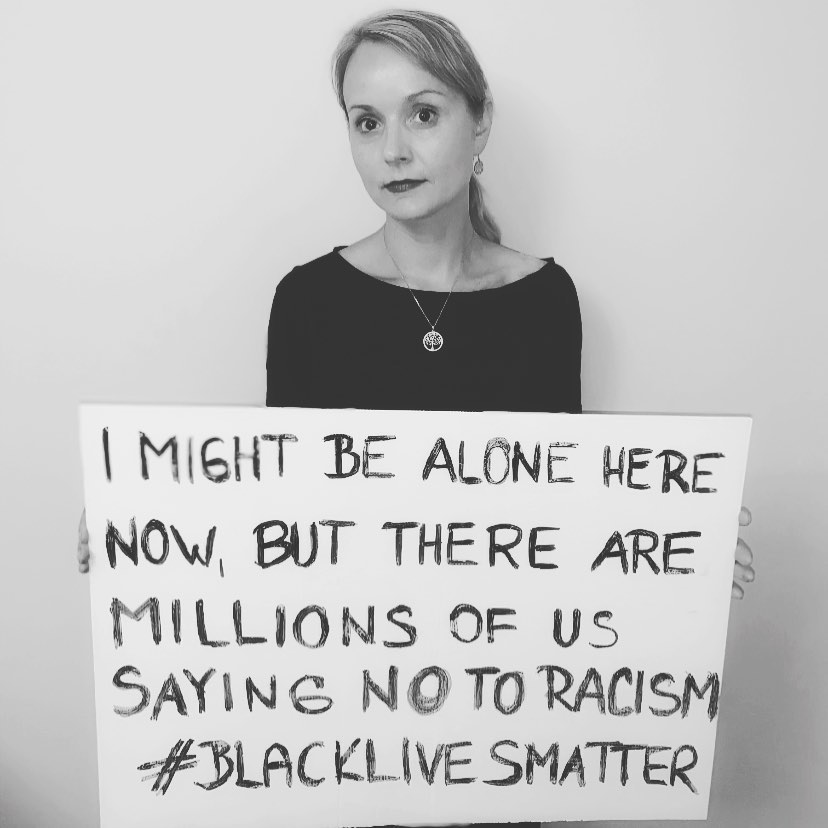 I MIGHT BE ALONE HERE
NOW, BUT THERE ARE
MILLIONS OF US
SAYING NO TO RACISM
#BLACKLIVESMATTER